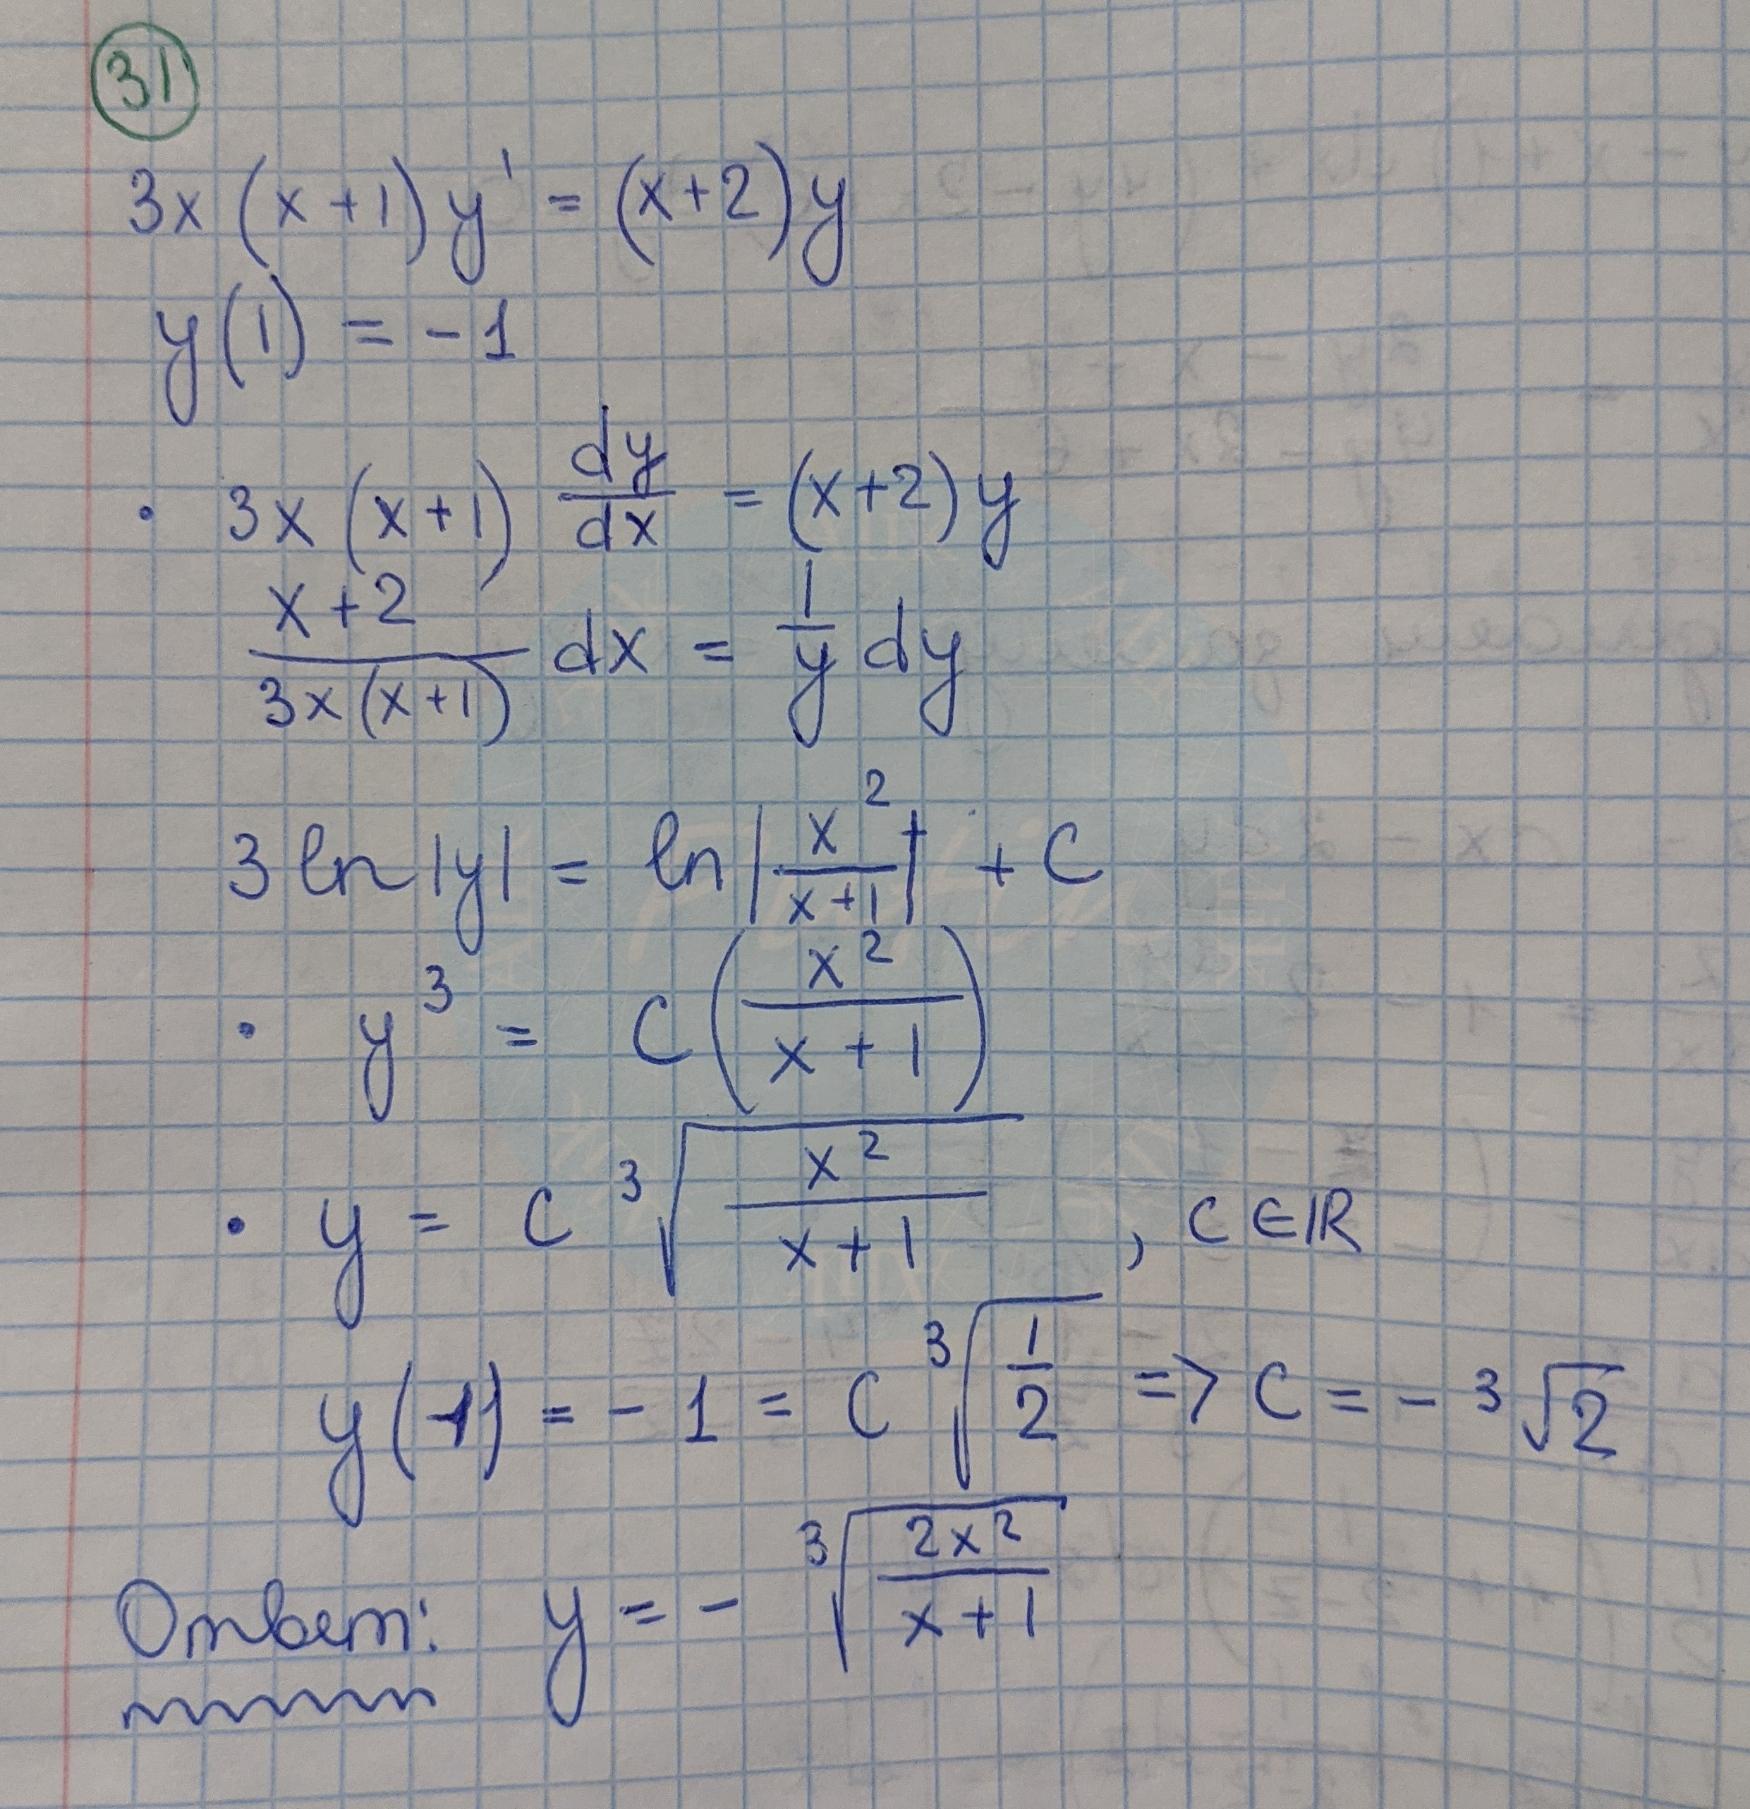 31
3x(x+1)y' = (x+2)y
y(1) = -1
• 3x(x+1) dy/dx = (x+2)y
(x+2)/(3x(x+1)) dx = 1/y dy
3 ln|y| = ln|x²/(x+1)| + C
• y³ = C(x²/(x+1))
• y = C ∛(x²/(x+1)), C∈ℝ
y(1) = -1 = C ∛(1/2) => C = -∛2
Ответ: y = - ∛(2x²/(x+1))